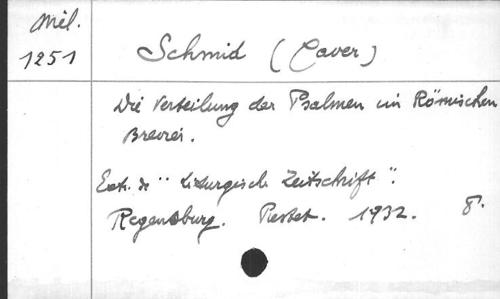 Mél.
1251
Schmid (Xaver)
Die Verteilung der Psalmen im Römischen
Brevier.
Extr. de "Liturgische Zeitschrift".
Regensburg. Pustet. 1932. 8°.